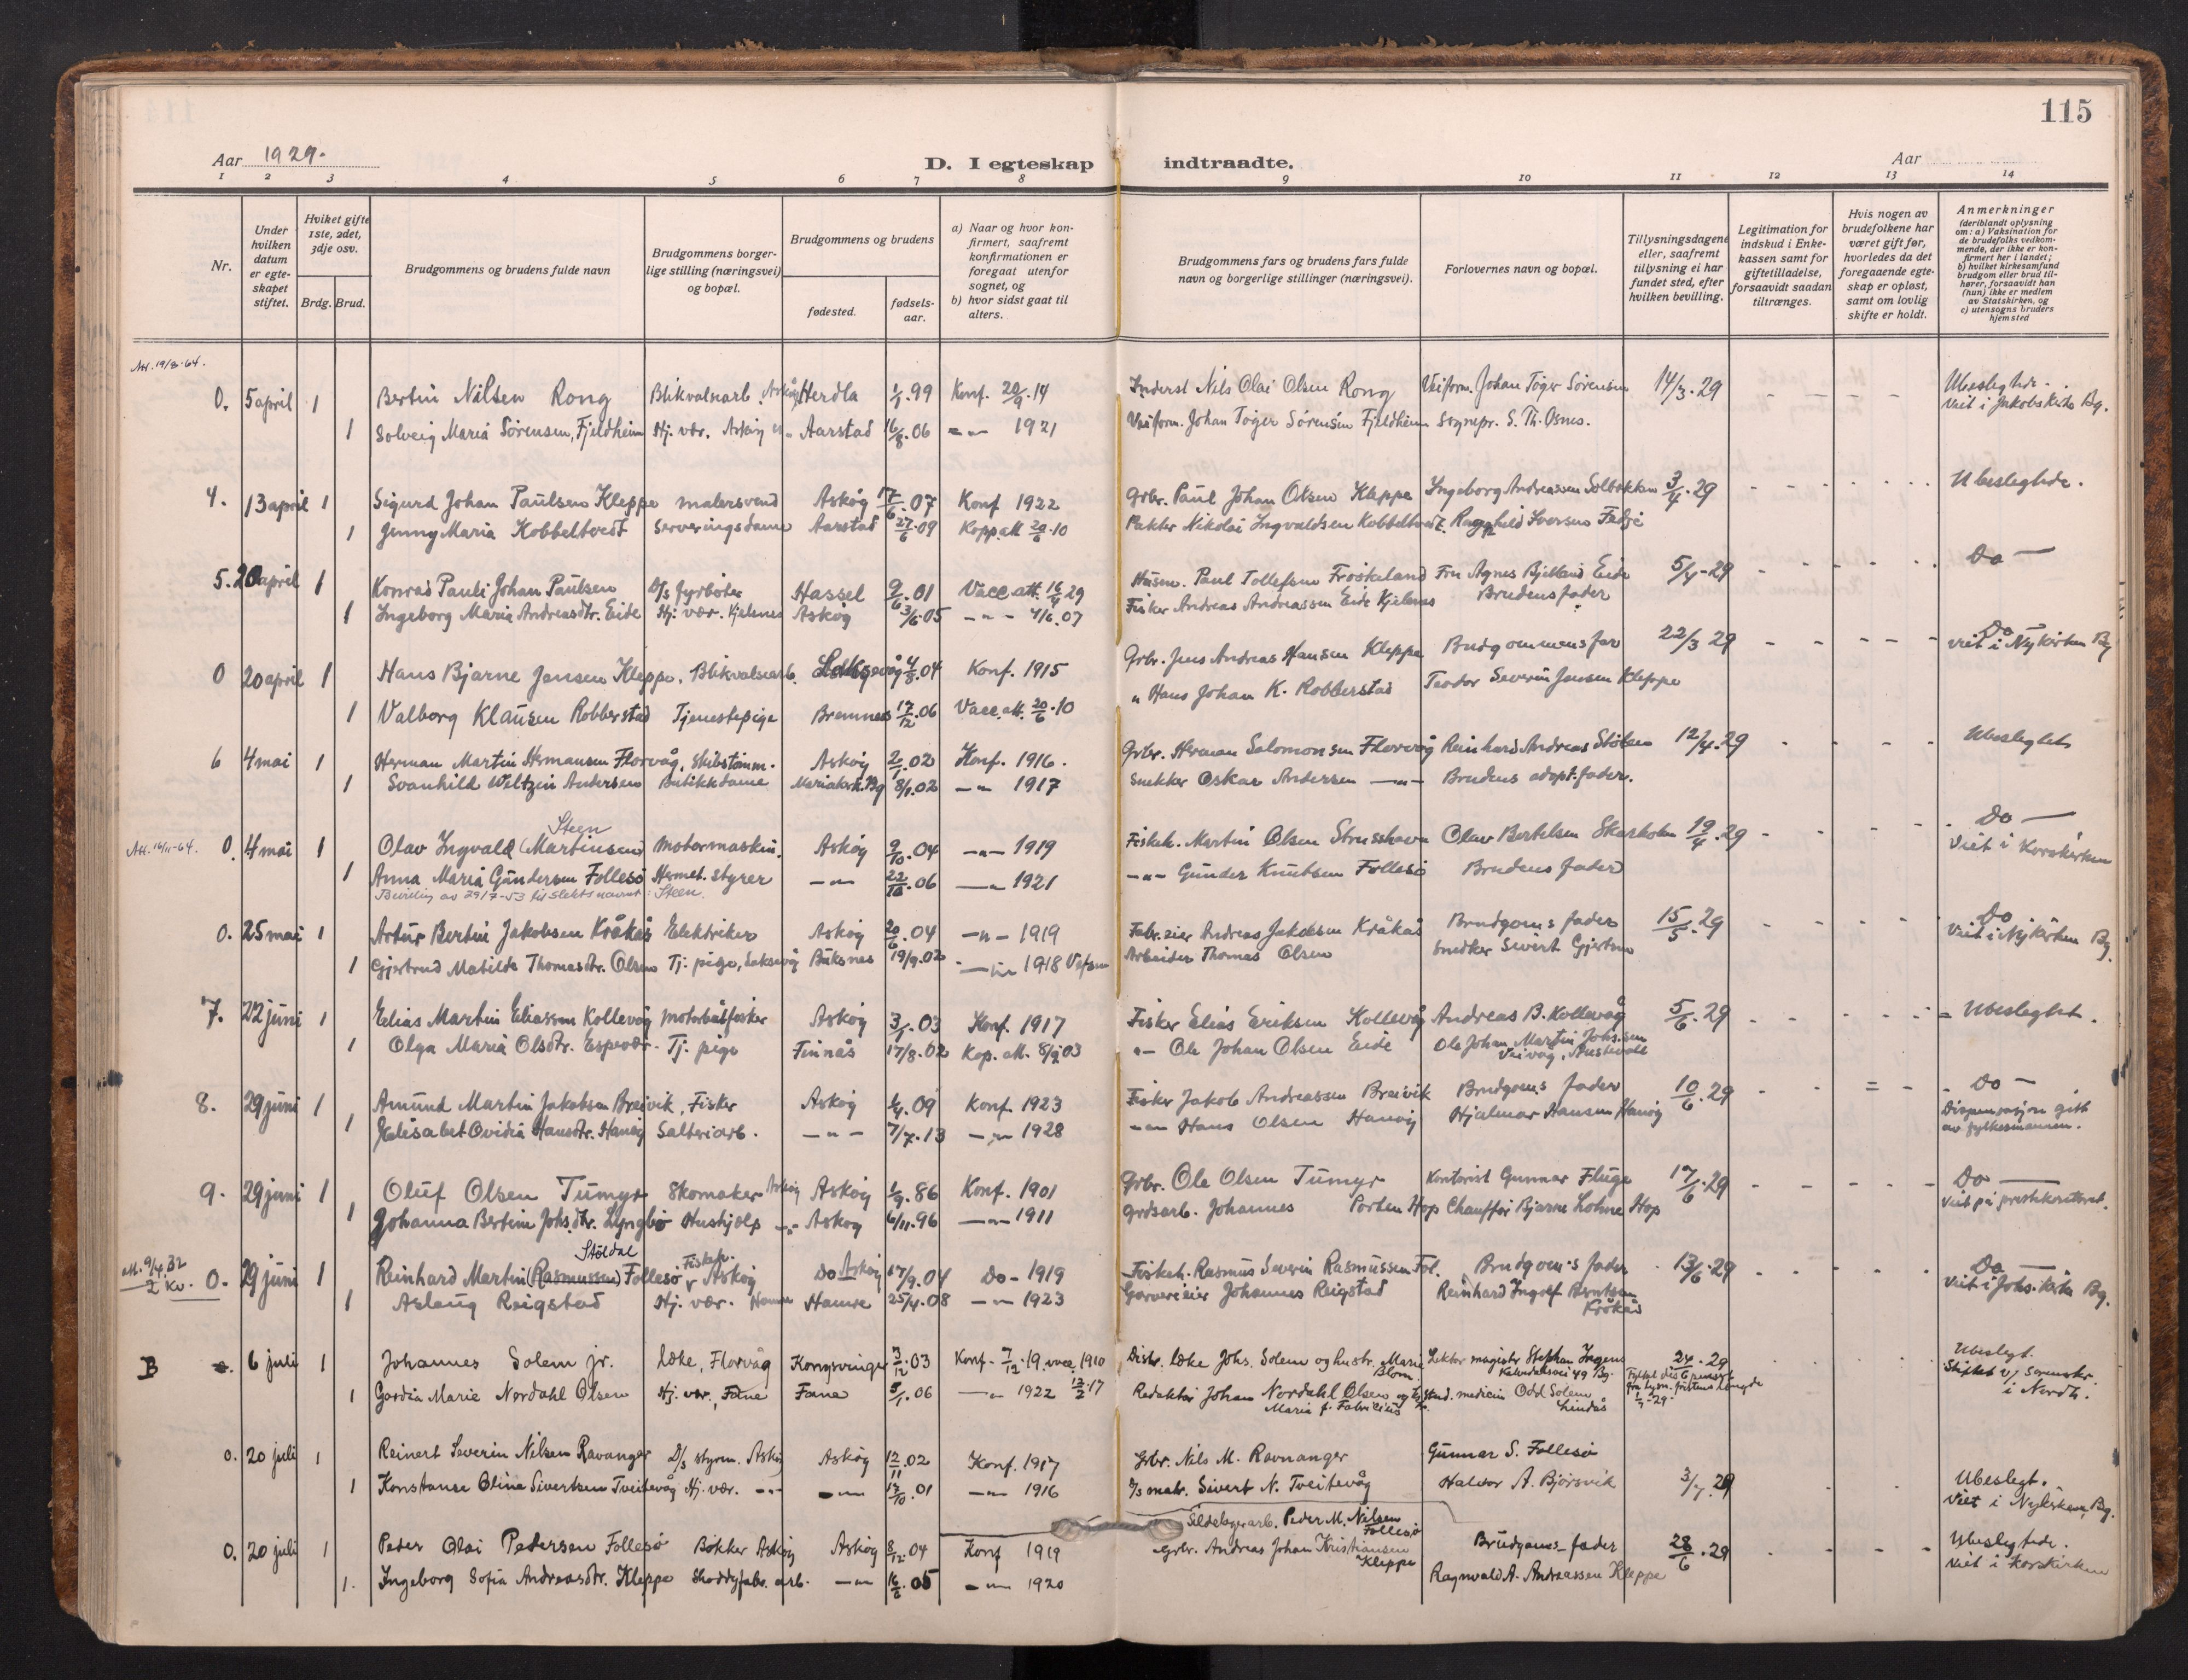 115
Aar 1929.
D. I egteskap indtraadte.
Aar
1 2 3 4 5 6 7 8 9 10 11 12 13 14
Nr.
Under hvilken datum er egteskapet stiftet.
Hviket gifte 1ste, 2det, 3dje osv.
Brdg. Brud.
Brudgommens og brudens fulde navn
Brudgommens borgerlige stilling (næringsvei) og bopæl.
Brudgommens og brudens
fødested.
fødselsaar.
a) Naar og hvor konfirmert, saafremt konfirmationen er foregaat utenfor sognet, og
b) hvor sidst gaat til alters.
Brudgommens fars og brudens fars fulde navn og borgerlige stillinger (næringsvei).
Forlovernes navn og bopæl.
Tillysningsdagene eller, saafremt tillysning ei har fundet sted, efter hvilken bevilling.
Legitimation for indskud i Enkekassen samt for giftetilladelse, forsaavidt saadan tiltrænges.
Hvis nogen av brudefolkene har været gift før, hvorledes da det foregaaende egteskap er opløst, samt om lovlig skifte er holdt.
Anmerkninger (deriblandt oplysning om: a) Vaksination for de brudefolks vedkommende, der ikke er konfirmert her i landet; b) hvilket kirkesamfund brudgom eller brud tilhører, forsaavidt han (hun) ikke er medlem av Statskirken, og c) utensogns bruders hjemsted
Att. 19/8-64.
0. 5 april 1 Bertin Nilsen Rong Blikvalsearb. Askøy Herdla 1/1.99 Konf. 20/9.14 Inderst Nils Olai Olsen Rong Veiform. Johan Tøger Sørensen 14/3.29 Ubeslegtede.
1 Solveig Maria Sørensen, Fjeldheim Hj. vær. Askøy Aarstad 16/8.06 -"- 1921 Veiform. Johan Tøger Sørensen Fjeldheim Sognepr. S. Th. Osnes. Viet i Jakobskirke Bg.
4. 13 april 1 Sigurd Johan Paulsen Kleppe malersvend Askøy 17/6.07 Konf 1922 Grbr. Paul Johan Olsen Kleppe Ingeborg Andreassen Solbakken 3/4.29 Ubeslegtede.
1 Jenny Maria Kobbeltvedt Serveringsdame Aarstad 27/6.09 Kopp.att 29/6.10 Pakker Nikolai Ingvaldsen Kobbeltvedt. Ragnhild Iversen Fedje
5. 20 april 1 Konrad Pauli Johan Paulsen D/s fyrbøter Hassel 9/6.01 Vacc.att. 16/4 29 Husm. Paul Tollefsen Froskeland Fru Agnes Bjelland Eide 5/4-29 Do -
1 Ingeborg Maria Andreasdtr. Eide Hj. vær. Kjelenes Askøy 3/6.05 -"- 4/6.07 Fisker Andreas Andreassen Eide Kjelenes Brudens fader
0 20 april 1 Hans Bjarne Jensen Kleppe. Blikvalsearb. Laksevåg 4/8.04 Konf. 1915 Grbr. Jens Andreas Hansen Kleppe Brudgommens far 22/3 29 Do - viet i Nykirken Bg
1 Valborg Klausen Robberstad Tjenestepige Bremnes 17/12.06 Vacc.att. 20/6.10 " Hans Johan K. Robberstad Teodor Severin Jensen Kleppe
6 4 mai 1 Herman Martin Hermansen Florvåg, Skibstømm. Askøy 2/1.02 Konf. 1916. Grbr. Herman Salomonsen Florvåg Reinhard Andreas 12/4.29 Ubeslegtet
1 Svanhild Weltzin Andersen Butikkdame Mariakirk. Bg 8/1.02 -"- 1917 Snekker Oskar Andersen -"- Brudens adopt.fader.
Att. 16/11-64. 0. 4 mai 1 Olav Ingvald (Martinsen) Steen Motormaskin. Askøy 9/10.04 -"- 1919 Fiskeh. Martin Olsen Strusshavn Olav Bertelsen Skarholm 19/4.29 Do -
1 Anna Maria Gundersen Follesø Hermet. styrer -"- 22/10.06 -"- 1921 -"- Gunder Knutsen Follesø Brudens fader Viet i Korskirken
Bevilling av 29/7-53 til slektsnavnet: Steen.
0. 25 mai 1 Artur Bertin Jakobsen Kråkås Elektriker Askøy 20/6.04 -"- 1919 Fabr.eier Andreas Jakobsen Kråkås Brudgom's fader 15/5.29 Do
1 Gjertrud Matilde Thomasdtr. Olsen Tj. pige, Laksevåg Buksnes 19/9.02 -"- 1918 Vefsn Arbeider Thomas Olsen Snedker Sivert Gjertsen Viet i Nykirken Bg.
7. 22 juni 1 Elias Martin Eliassen Kollevåg motorbåtfisker Askøy 3/1.03 Konf. 1917 Fisker Elias Eriksen Kollevåg Andreas B. Kollevåg 5/6.29 Ubeslegtet.
1 Olga Maria Olsdtr. Espevær Tj. pige Finnås 17/8.02 Kop. att. 8/9 03 "- Ole Johan Olsen Eide Ole Johan Martin Johs.sen Veivåg, Austevoll
8. 29 juni 1 Amund Martin Jakobsen Breivik, Fisker Askøy 1/4.09 Konf. 1923 Fisker Jakob Andreassen Breivik Brudgom's fader 10/6.29 Do -
1 Elisabet Ovidia Hansdtr. Hanøy Salteriarb. -"- 7/7.13 -"- 1928 -"- Hans Olsen Hanøy Hjalmar Hansen Hanøy Dispensasjon gitt av fylkesmannen.
9. 29 juni 1 Oluf Olsen Tumyr Skomaker Askøy Askøy 1/9.86 Konf. 1901 Grbr. Ole Olsen Tumyr Kontorist Gunnar Fluge 17/6.29 Do -
1 Johanna Bertine Johs.dtr. Lyngbø Hushjelp -"- Askøy 6/11.96 -"- 1911 Grdsarb. Johannes Porten Hop Chauffør Bjarne Lohne Hop Viet på prestekontoret.
att. 9/4.32 2 Kv. 0. 29 juni 1 Reinhard Martin (Rasmussen) Støldal Follesø Fiskeh. Askøy Do Askøy 17/9.04 Do - 1919 Fiskeh. Rasmus Severin Rasmussen Fol. Brudgom's fader 13/6.29 Do -
1 Aslaug Reigstad Hj. vær. Hamre Hamre 25/4.08 -"- 1923 Garverieier Johannes Reigstad Reinhard Ingolf Berntsen Kråkås Viet i Johs. kirke Bg.
B 6 juli 1 Johannes Solem jr. læke, Florvåg Kongsvinger 3/12.03 Konf. 7/12.19 vacc. 1910 Distr. læke Johs. Solem og hustr. Marie Blom Lektor magister Stephan Kalvedalsvei 49 Bg. 24/6.29 Ubeslegt.
1 Gordia Marie Nordahl Olsen Hj. vær. Fane Fane 5/1.06 -"- 1922 12/2.17 Redaktør Johan Nordahl Olsen og h. Maria f. Fabricius Stud. medicin Odd Solem Lindås i Nordh.
0. 20 juli 1 Reinert Severin Nilsen Ravanger D/s styrm. Askøy Askøy 12/11.02 Konf. 1917 Grbr. Nils M. Ravnanger Gunnar S. Follesø
1 Konstanse Oline Sivertsen Tveitevåg Hj. vær. -"- -"- 17/10.01 -"- 1916 D/s matr. Sivert N. Tveitevåg Halvor A. Bjørsvik 3/7.29 Ubeslegt. Viet i Nykirken, Bg.
0. 20 juli 1 Peder Olai Pedersen Follesø Bøkker Askøy Askøy 8/12.04 Konf 1919 Sildolgerarb. Peder M. Nilsen Follesø Brudgoms fader 28/6.29 Ubeslegtede.
1. Ingeborg Sofia Andreasdtr. Kleppe Shoddyfabr. arb. -"- 16/6.05 -"- 1920 Grbr. Andreas Johan Kristiansen Kleppe Ragnvald A. Andreassen Kleppe Viet i Korskirken